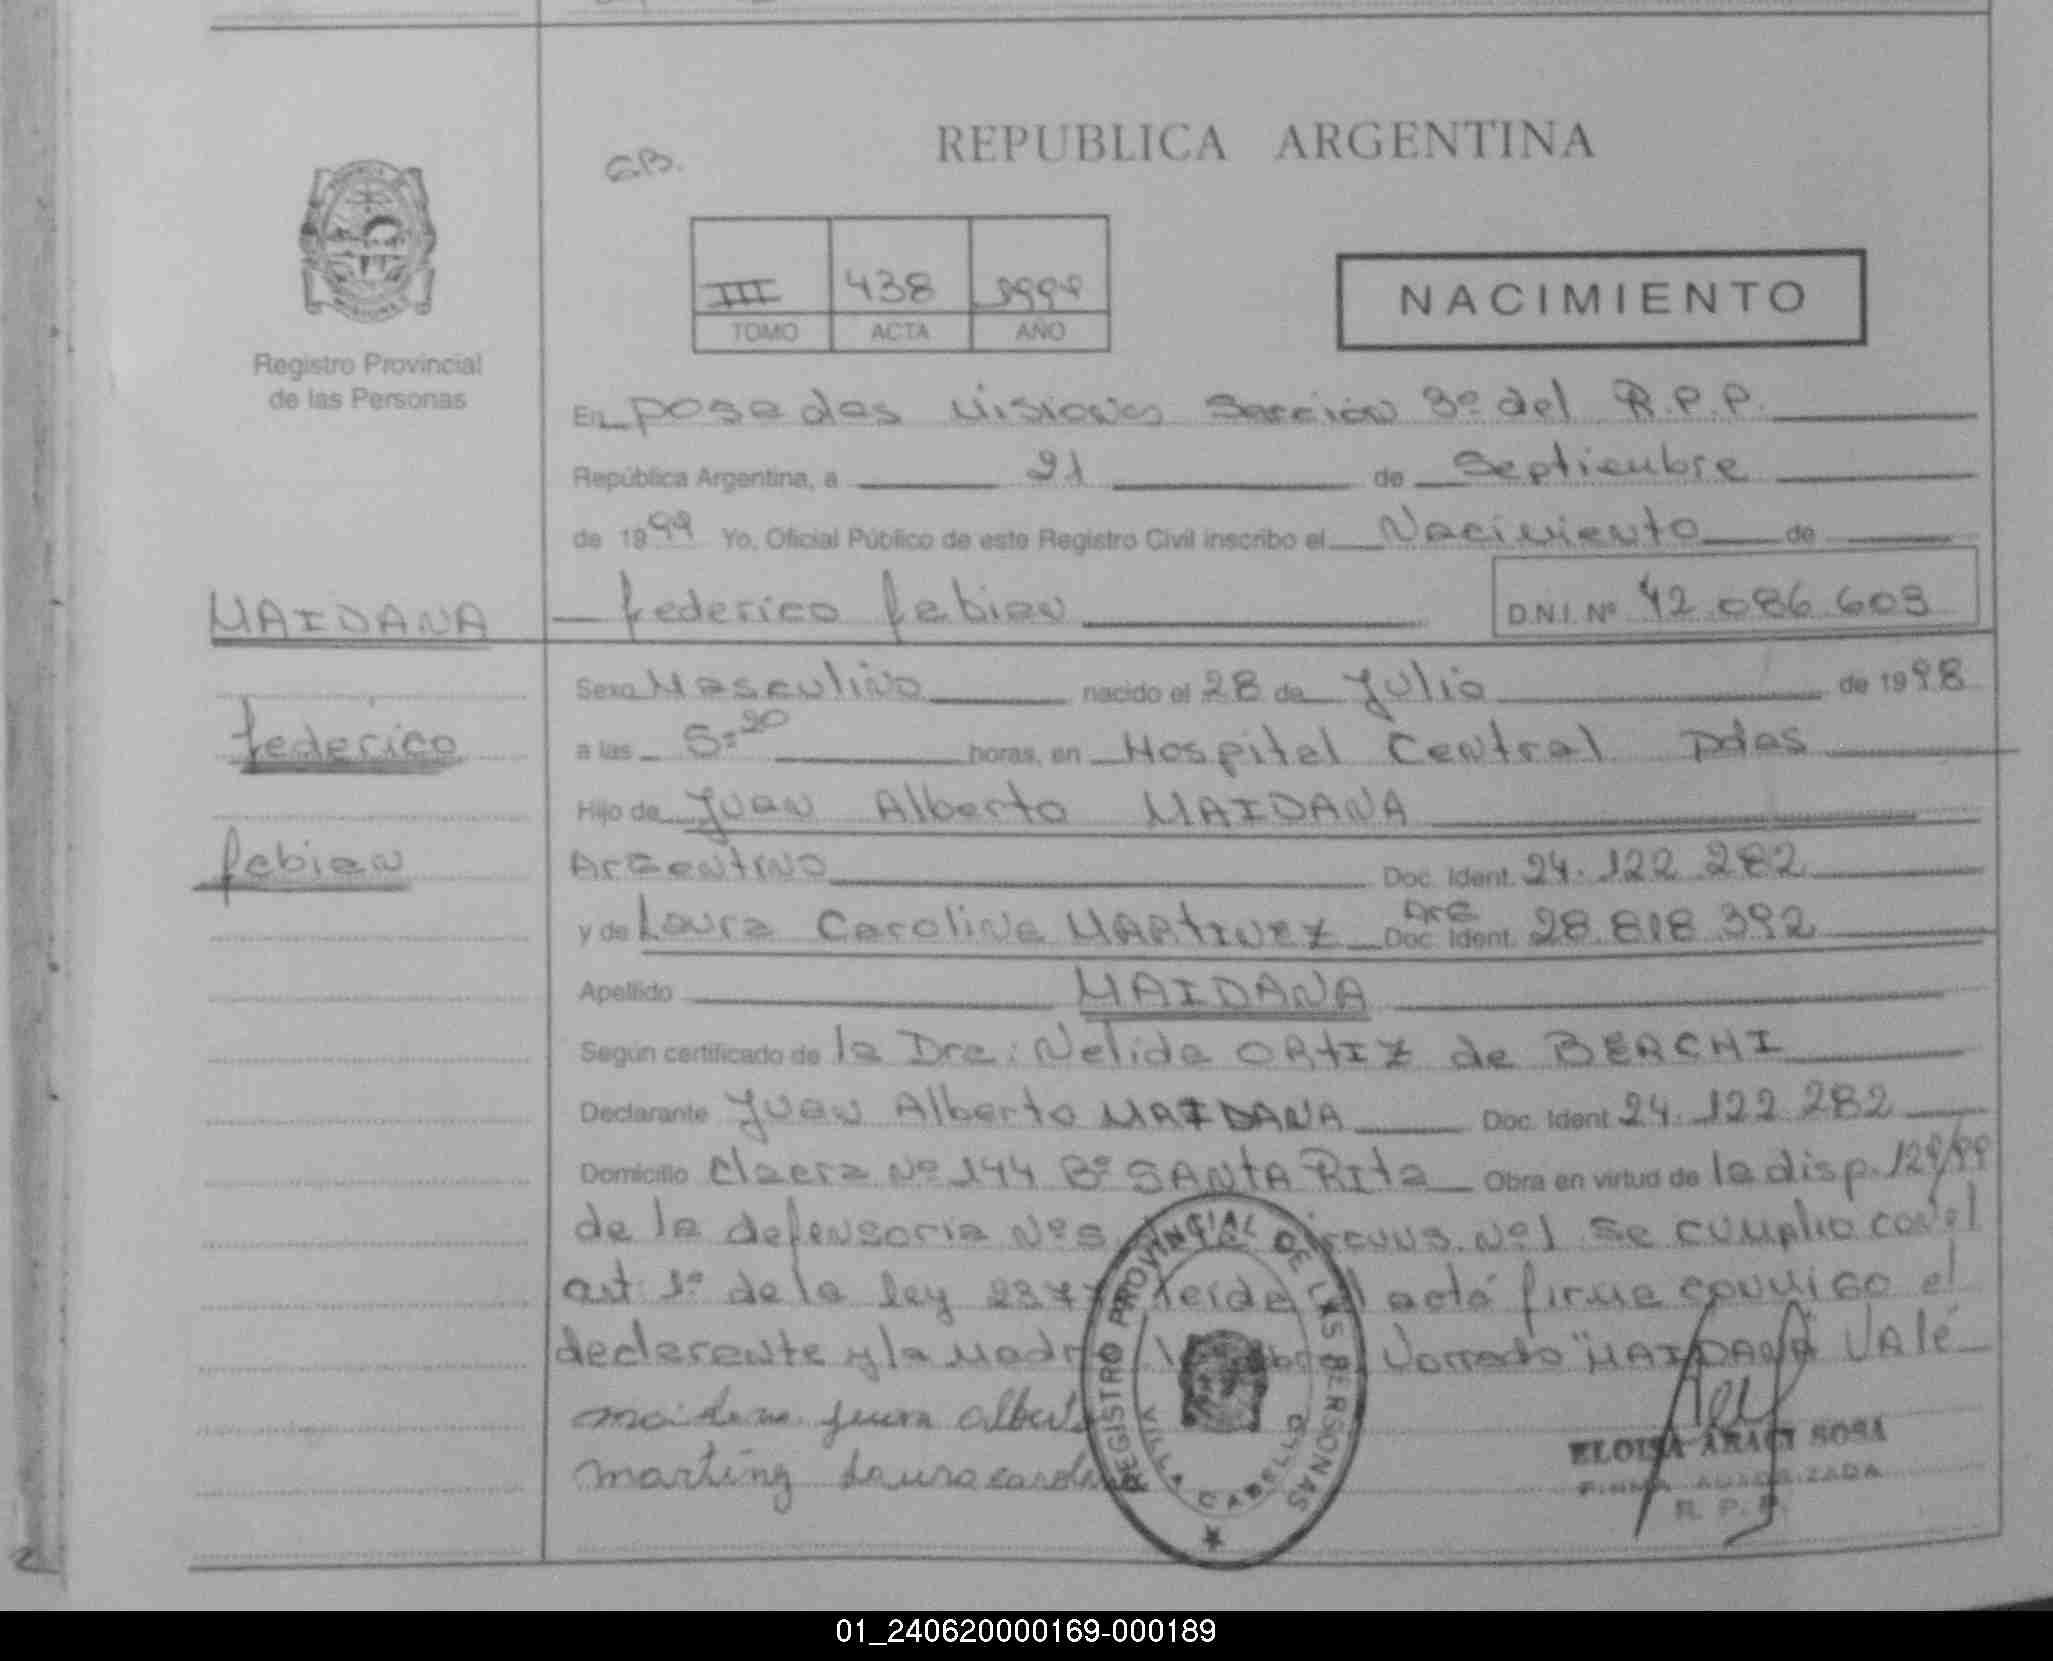 REPUBLICA ARGENTINA
GB.
III 438 1999
TOMO ACTA AÑO
NACIMIENTO
Registro Provincial
de las Personas
En posadas Misiones Sección 3º del R.P.P.
República Argentina, a 21 de Septiembre
de 1999 Yo, Oficial Público de este Registro Civil inscribo el Nacimiento de
MAIDANA
federico fabian D.N.I. Nº 42.086.603
Sexo Masculino nacido el 28 de Julio de 1998
federico
a las 5:20 horas, en Hospital Central pdas
Hijo de Juan Alberto MAIDANA
fabian
Argentino Doc. Ident. 24.122.282
y de Laura Carolina MARtINEZ Arg Doc. Ident. 28.818.392
Apellido MAIDANA
Según certificado de la Dra: Nelida ORtIZ de BERCHI
Declarante Juan Alberto MAIDANA Doc. Ident 24.122.282
Domicilio Nº 144 Bº SANtA RIta Obra en virtud de la disp. 129/99
de la defensoria Nº Nº1 se cumplio con el
art 1º de la ley leida el acta firma conmigo el
declarante y la Madre "MAIDANA" VAle
maidana juan alberto
martinez laura carolina
REGISTRO PROVINCIAL DE LAS PERSONAS
VILLA CABELLO
ELOISA ARACI SOSA
FIRMA AUTORIZADA
R. P. P.
01_240620000169-000189